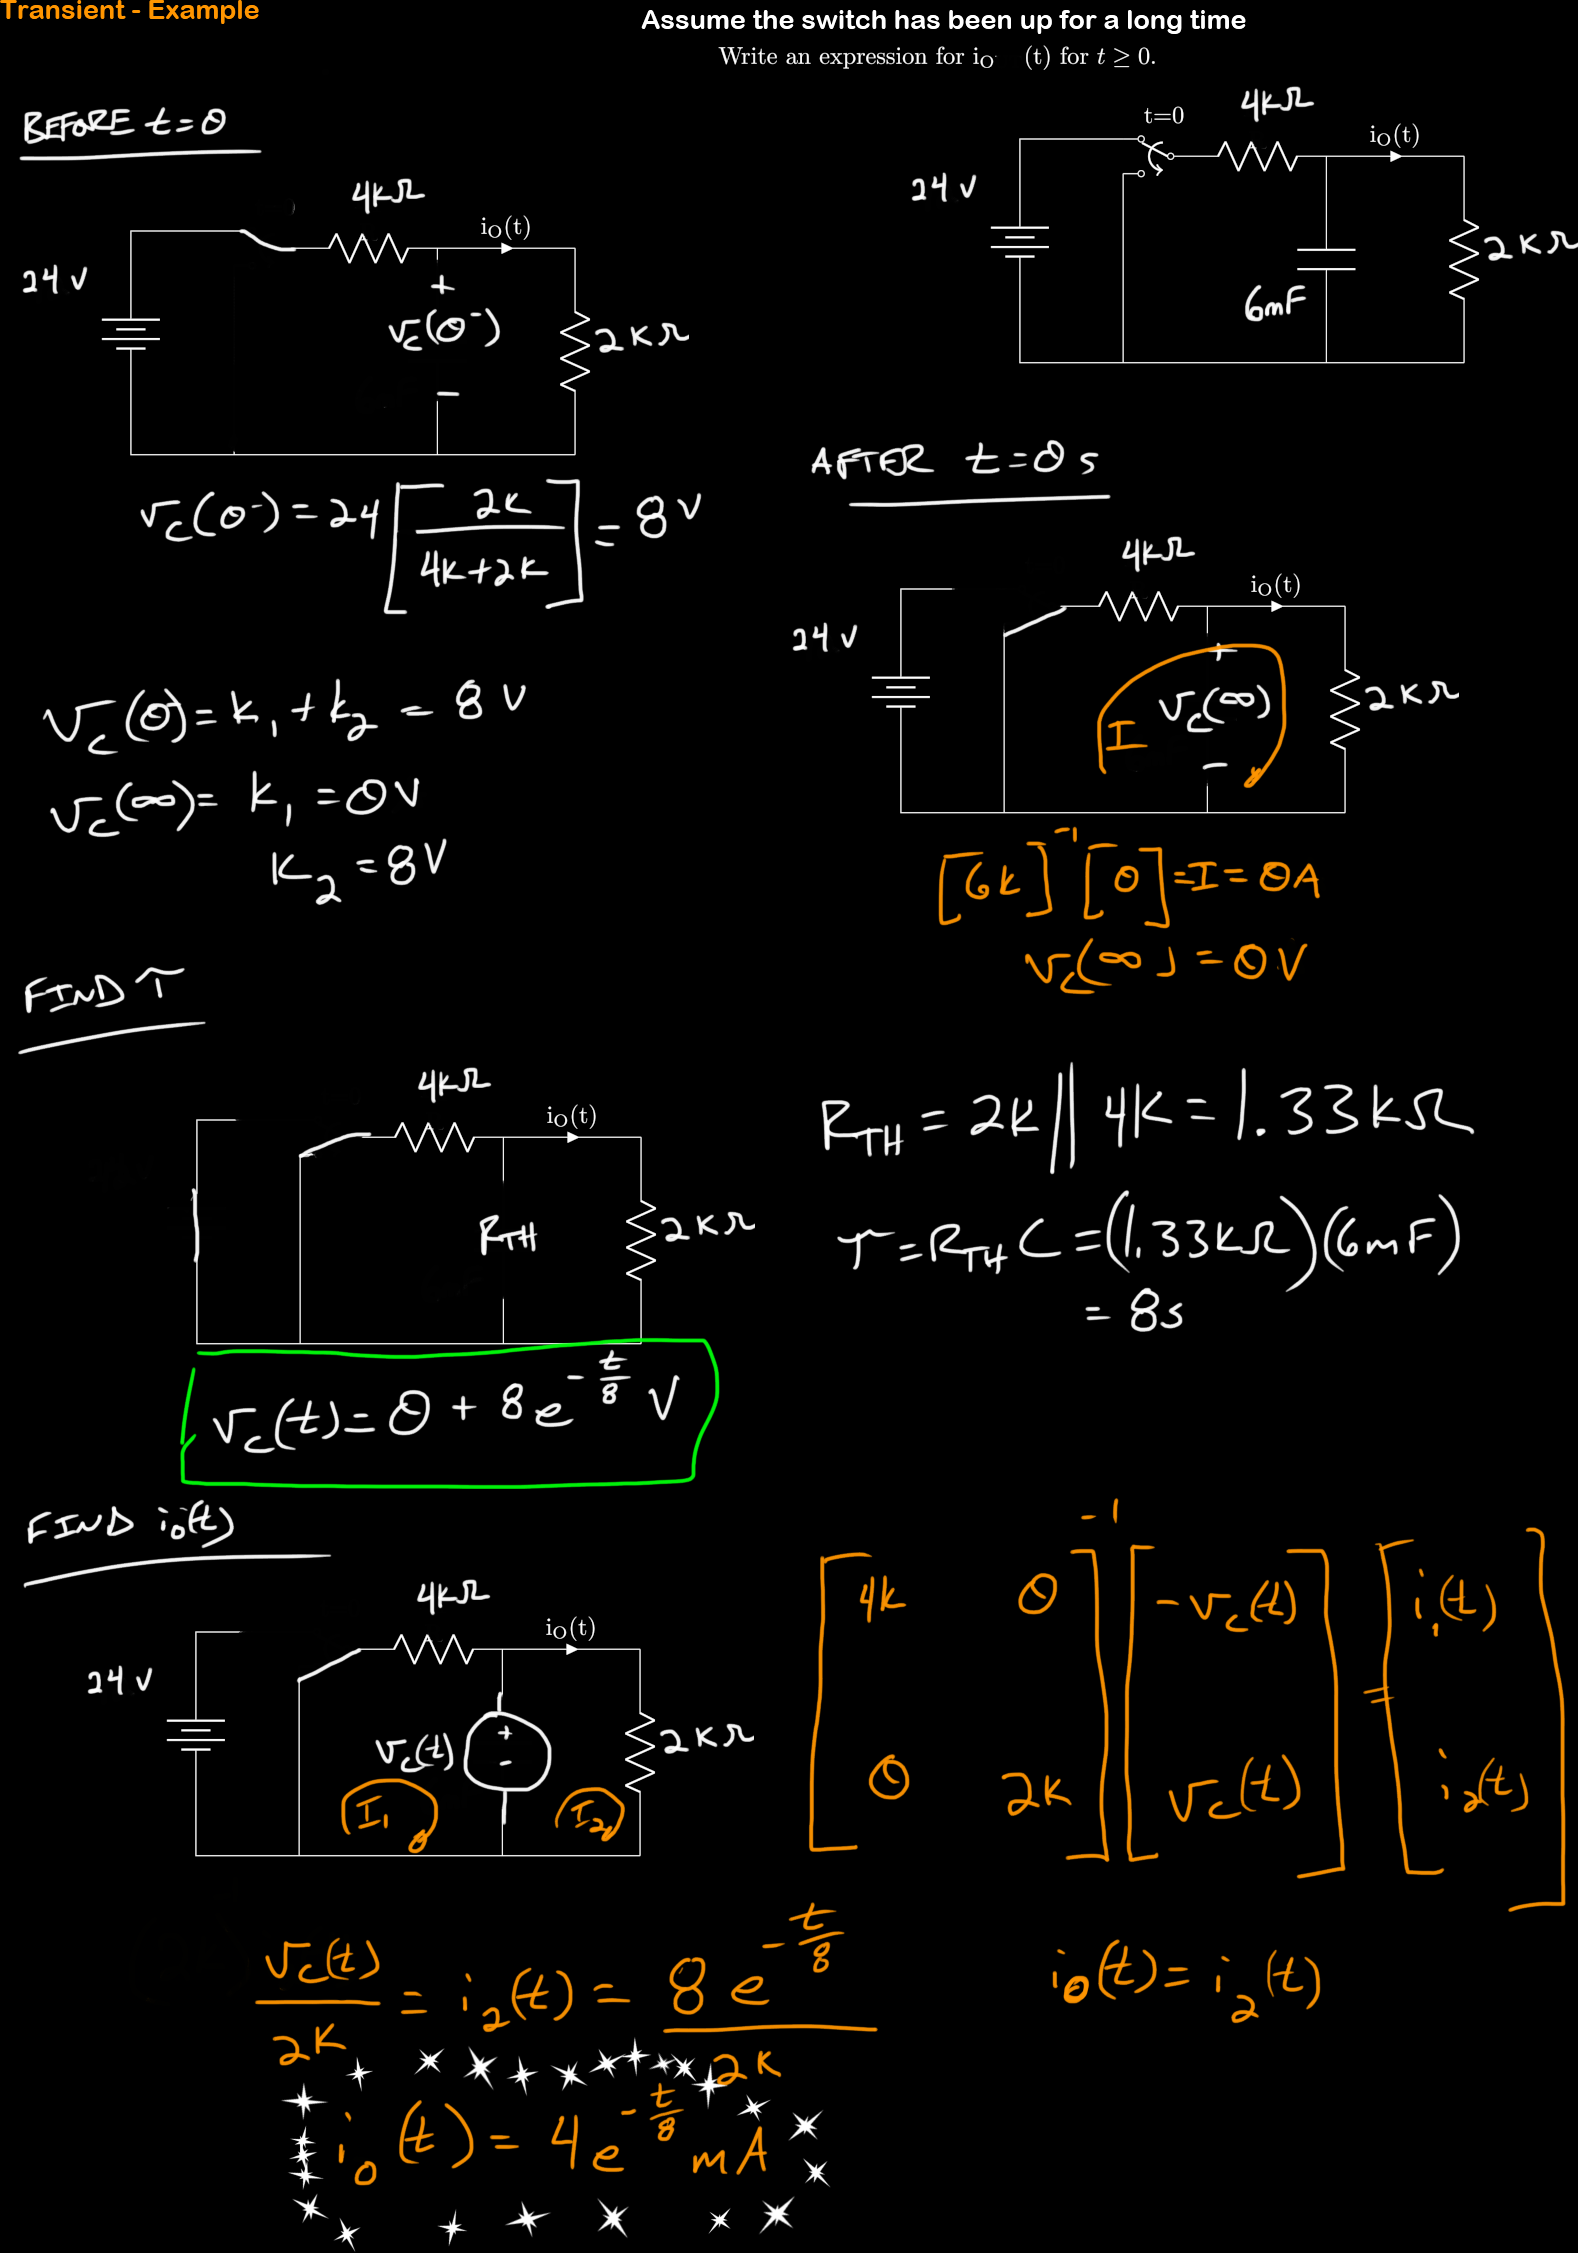 Transient - Example
Assume the switch has been up for a long time
Write an expression for i_O (t) for t ≥ 0.
BEFORE t=0
4kΩ
i_O(t)
24 V
+
v_c(0⁻)
-
2kΩ
t=0
4kΩ
i_O(t)
24 V
6mF
2kΩ
v_c(0⁻) = 24 [2k / (4k+2k)] = 8 V
AFTER t=0s
4kΩ
i_O(t)
24 V
+
v_c(∞)
-
I
2kΩ
v_c(0) = k₁ + k₂ = 8 V
v_c(∞) = k₁ = 0V
k₂ = 8V
[6k]⁻¹ [0] = I = 0A
v_c(∞) = 0V
FIND τ
4kΩ
i_O(t)
R_TH
2kΩ
R_TH = 2k || 4k = 1.33kΩ
τ = R_TH C = (1.33kΩ)(6mF)
= 8s
v_c(t) = 0 + 8e^(-t/8) V
FIND i_o(t)
4kΩ
i_O(t)
24 V
v_c(t)
+
-
I₁
I₂
2kΩ
[4k 0; 0 2k]⁻¹ [-v_c(t); v_c(t)] = [i₁(t); i₂(t)]
v_c(t)/2k = i₂(t) = 8e^(-t/8)/2k
i_o(t) = i₂(t)
i_o(t) = 4e^(-t/8) mA